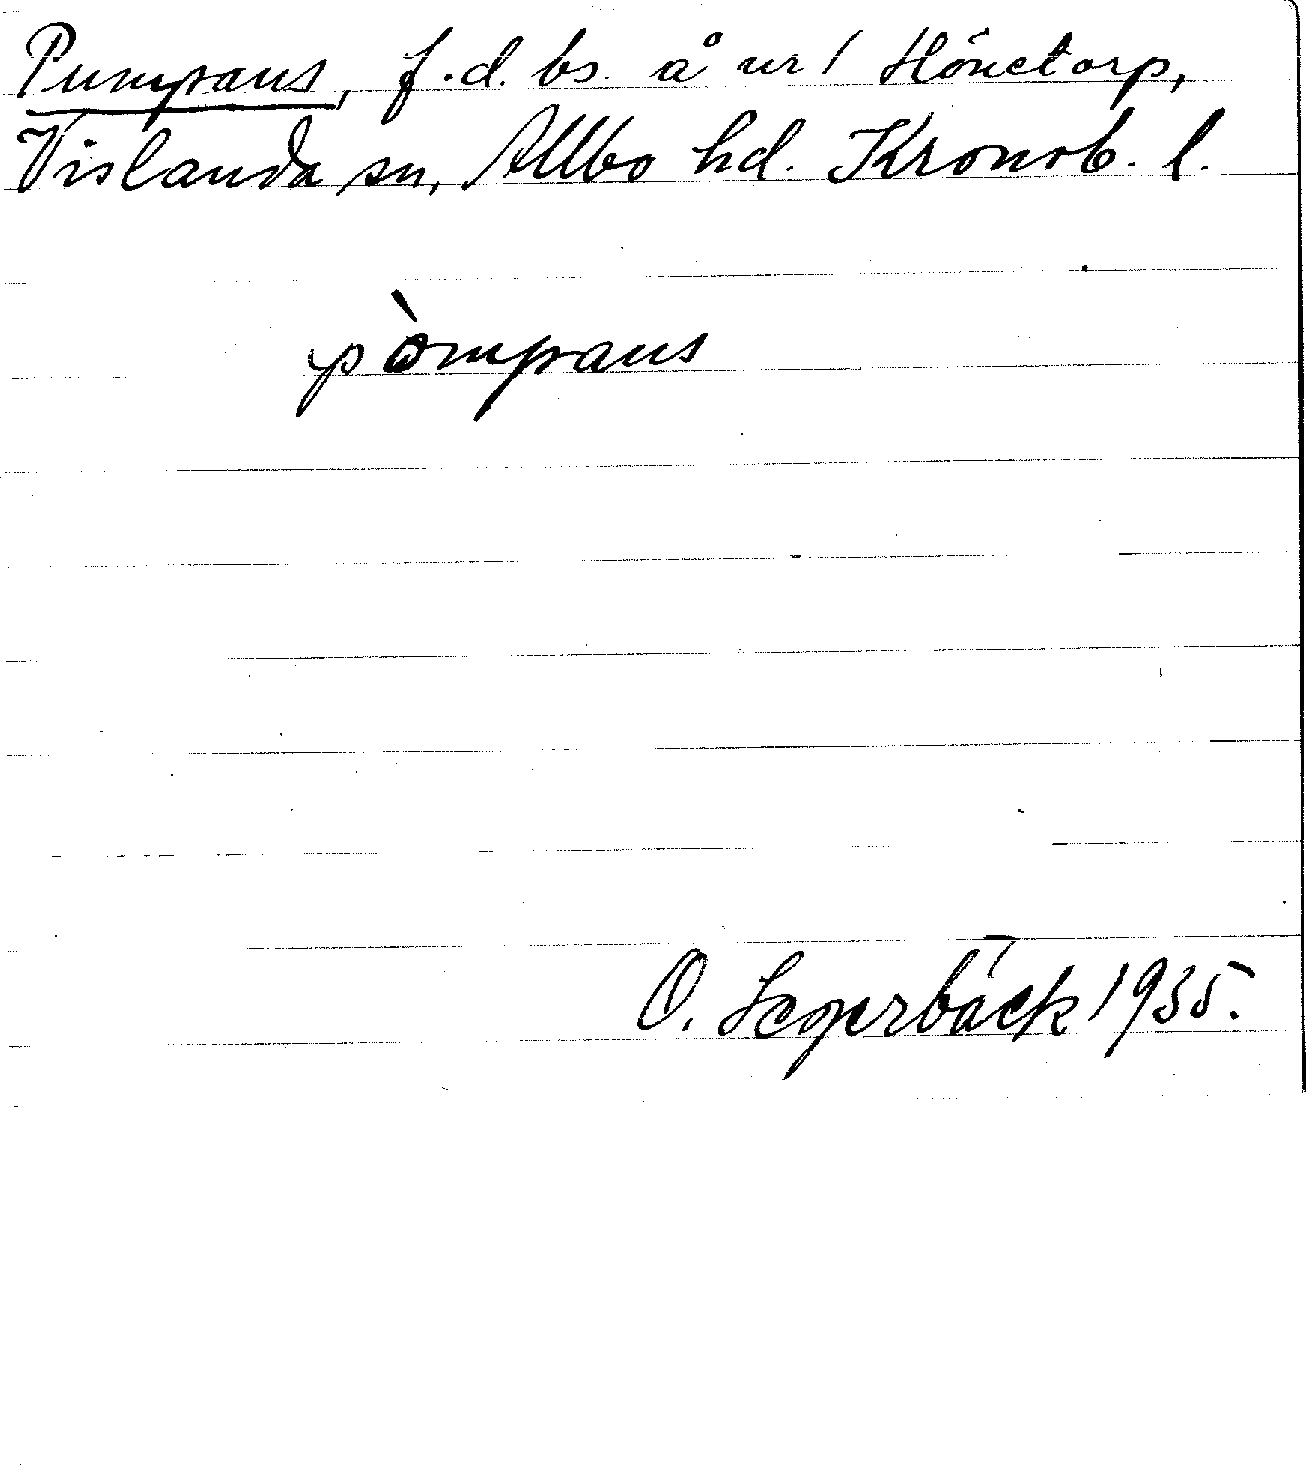 Pumpans, f.d. bs. å nr 1 Hönetorp,
Vislanda sn, Allbo hd. Kronob. l.
pòmpans
O. Segerbäck 1935.